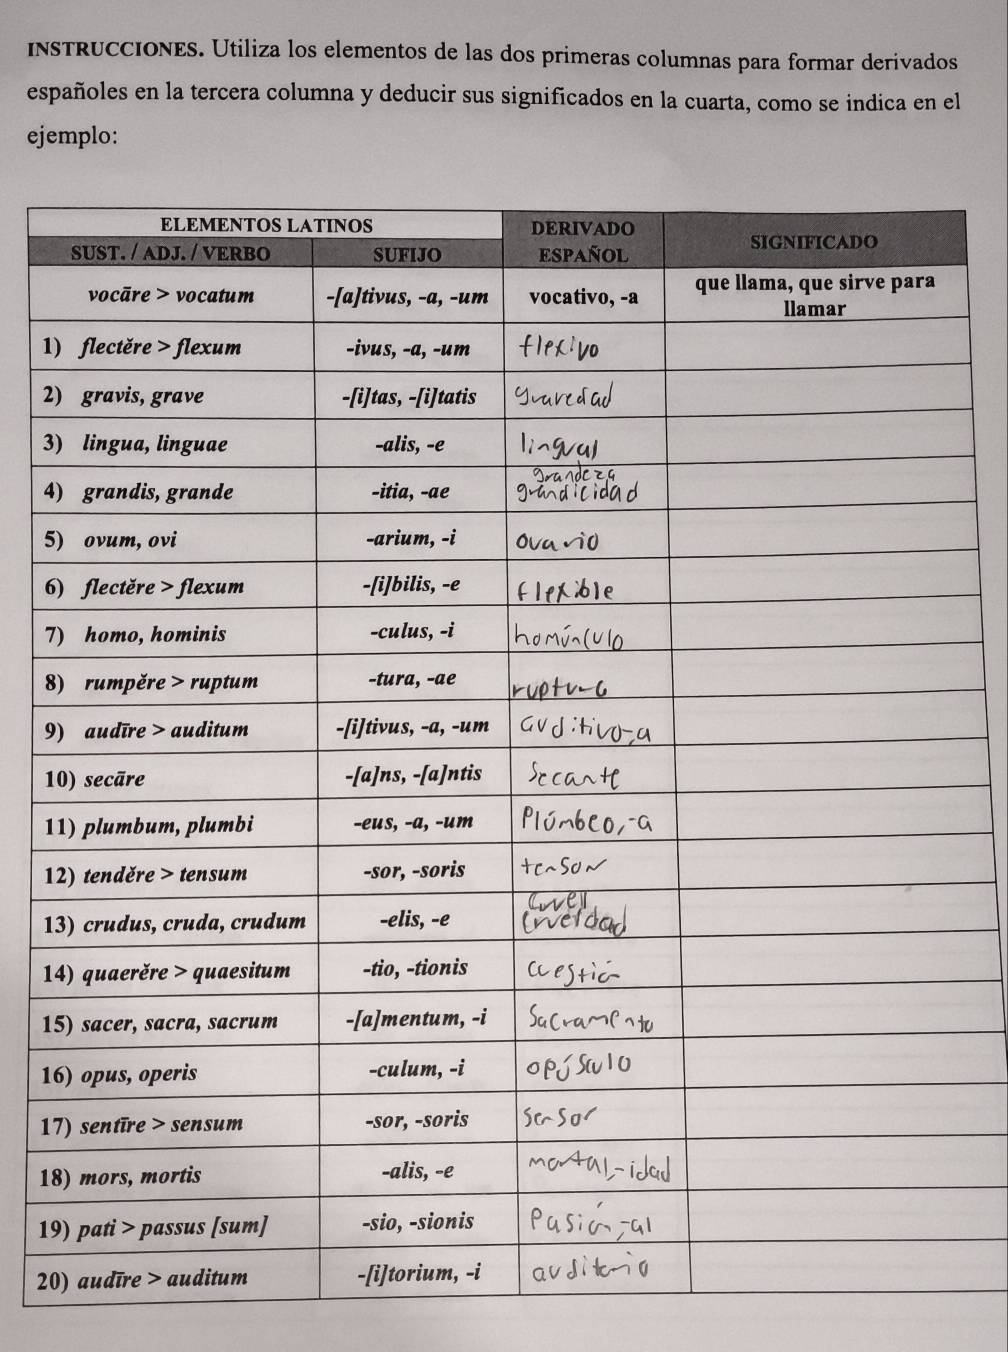 INSTRUCCIONES. Utiliza los elementos de las dos primeras columnas para formar derivados
españoles en la tercera columna y deducir sus significados en la cuarta, como se indica en el
ejemplo:
ELEMENTOS LATINOS DERIVADO ESPAÑOL SIGNIFICADO
SUST. / ADJ. / VERBO SUFIJO
vocāre > vocatum -[a]tivus, -a, -um vocativo, -a que llama, que sirve para
llamar
1) flectĕre > flexum -ivus, -a, -um flexivo
2) gravis, grave -[i]tas, -[i]tatis gravedad
3) lingua, linguae -alis, -e lingual
grandeza
4) grandis, grande -itia, -ae grandicidad
5) ovum, ovi -arium, -i ovario
6) flectĕre > flexum -[i]bilis, -e flexible
7) homo, hominis -culus, -i homúnculo
8) rumpĕre > ruptum -tura, -ae ruptura
9) audīre > auditum -[i]tivus, -a, -um auditivo-,a
10) secāre -[a]ns, -[a]ntis secante
11) plumbum, plumbi -eus, -a, -um Plúmbeo,-a
12) tendĕre > tensum -sor, -soris tensor
cruel
13) crudus, cruda, crudum -elis, -e crueldad
14) quaerĕre > quaesitum -tio, -tionis cuestión
15) sacer, sacra, sacrum -[a]mentum, -i Sacramento
16) opus, operis -culum, -i opúsculo
17) sentīre > sensum -sor, -soris sensor
18) mors, mortis -alis, -e mortal,-idad
19) pati > passus [sum] -sio, -sionis Pasión,-al
20) audīre > auditum -[i]torium, -i auditorio